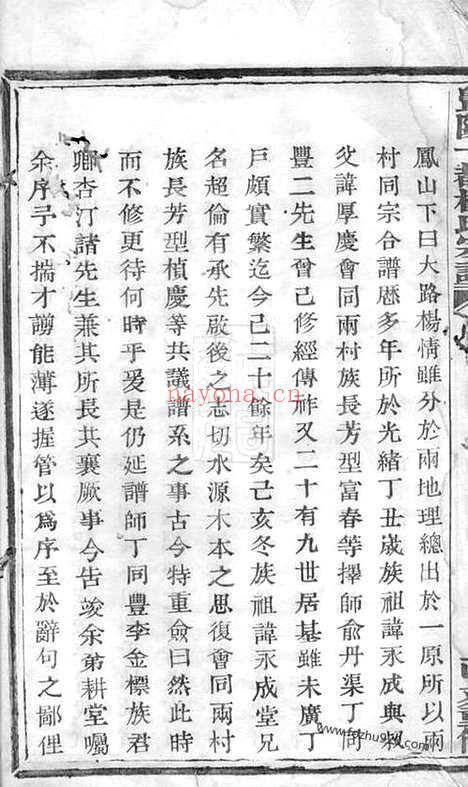 鳳山下曰大路楊情雖分於兩地理總出於一原所以兩
村同宗合譜歷多年所於光緒丁丑歲族祖諱永成與叔
父諱厚慶會同兩村族長芳型富春等擇師俞丹渠丁同
豐二先生曾已修經傳祚又二十有九世居基雖未廣丁
戶頗實繁迄今已二十餘年矣己亥冬族祖諱永成堂兄
名超倫有承先啟後之志切水源木本之思復會同兩村
族長芳型楨慶等共議譜系之事古今特重僉曰然此時
而不修更待何時乎爰是仍延譜師丁同豐李金標族君
卿杏汀諸先生兼其所長共襄厥事今告竣余弟耕堂囑
余序予不揣才謭能薄遂握管以為序至於辭句之鄙俚
nayona.cn
www.fzhu9hy.com